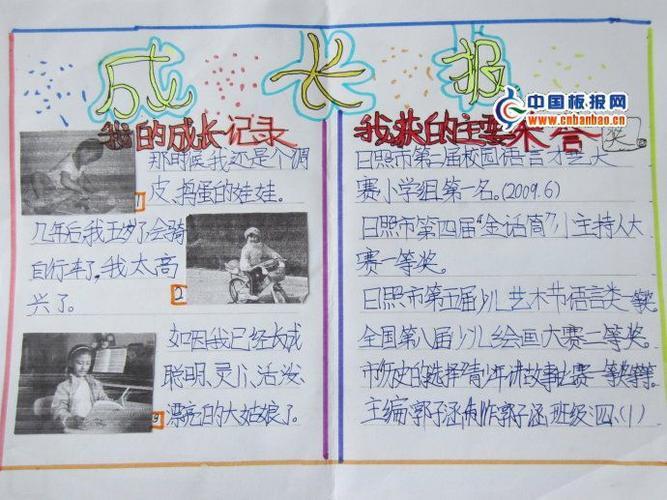 成长报
中国板报网
www.cnbanbao.cn
我的成长记录
那时候我还是个调
皮、捣蛋的娃娃。
1
几年后,我五岁了会骑
自行车了,我太高
兴了。
2
如因我已经长成
聪明、灵儿、活泼、
漂亮的大姑娘了。
3
我获的主要荣誉
奖
日照市第二届校园语言才艺大
赛小学组第一名。(2009.6)
日照市第四届“金话筒”小主持人大
赛一等奖。
日照市第五届少儿艺术节语言类一等奖
全国第八届少儿绘画大赛二等奖。
市历史的选择“青少年讲故事比赛一等奖等等。
主编:郭子涵制作郭子涵班级:四、(1)